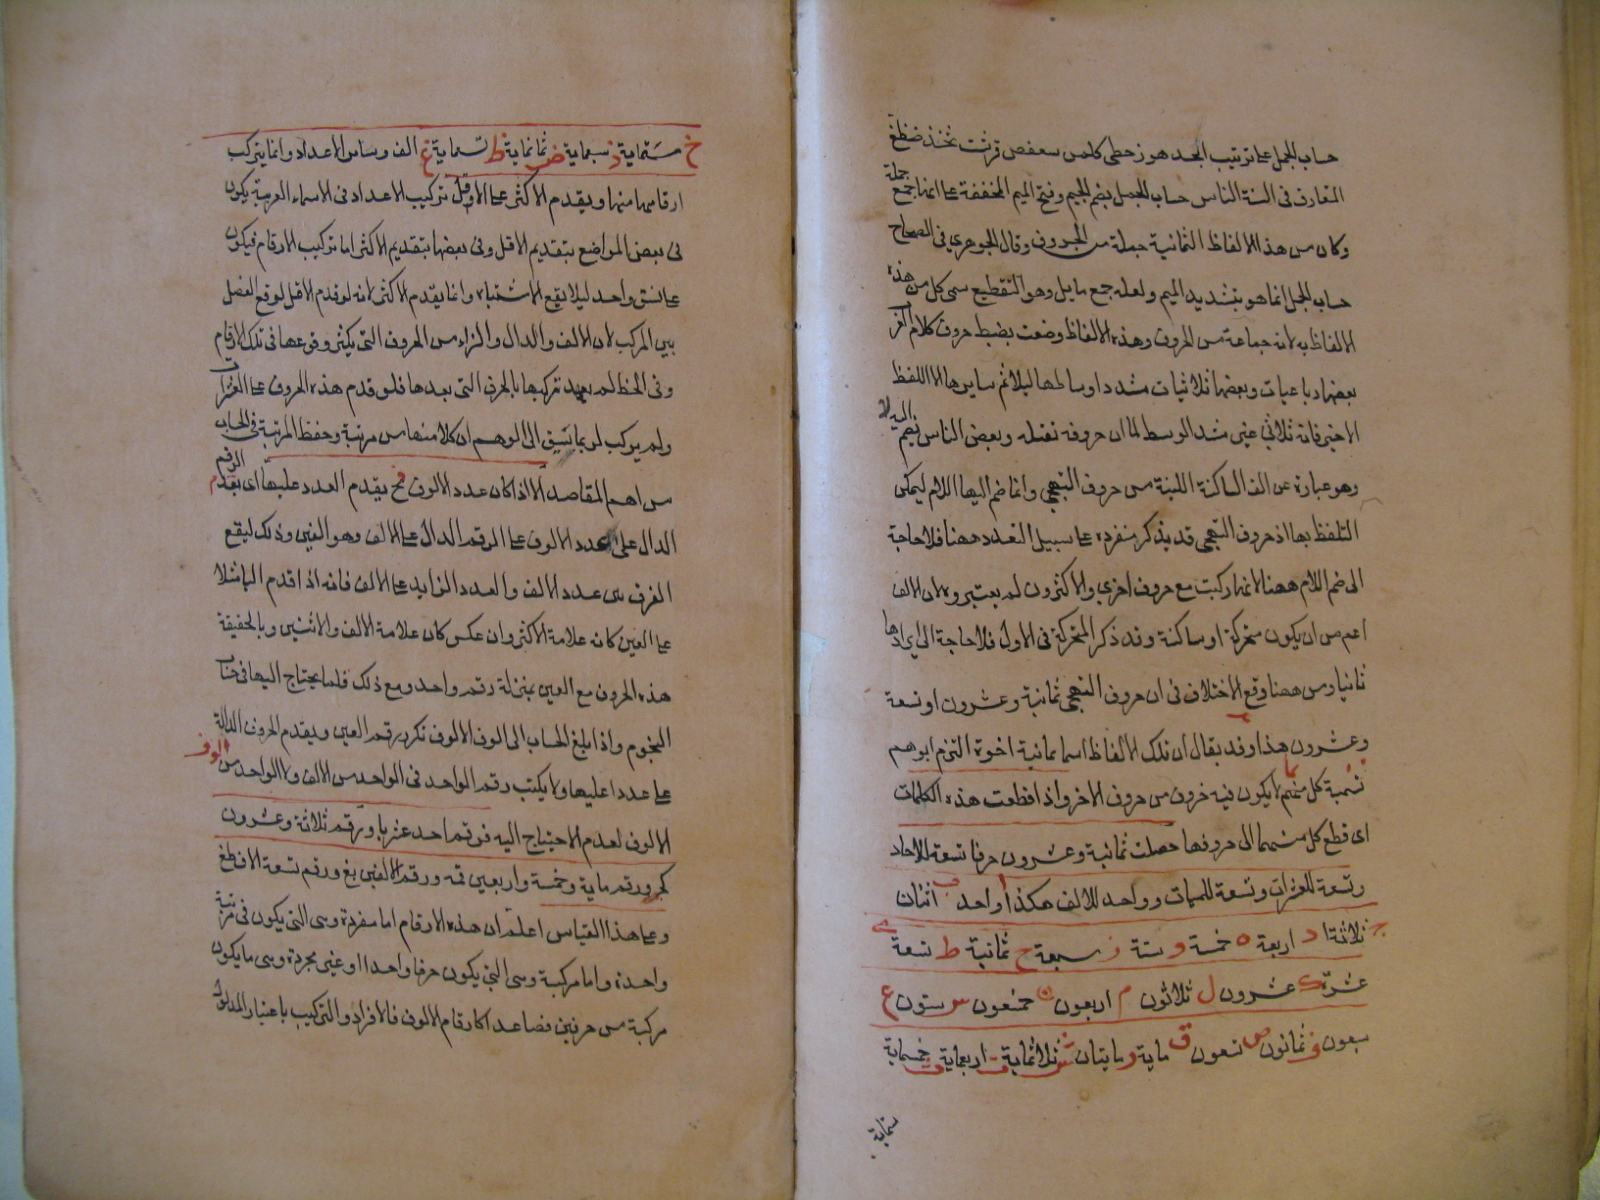 حساب الجمل على ترتيب ابجد هوز حطي كلمن سعفص قرشت ثخذ ضظغ
المتعارف في السنة الناس حساب الجمل بضم الجيم وفتح الميم المخففة على انها جمع جملة
وكان من هذا الالفاظ الثمانية جملة من الحروف وقال الجوهري في الصحاح
حساب الجمل انما هو بتشديد الميم ولعله جمع مايل وهو التقطيع سمى كل من هذه
الالفاظ به لانه جماعة من الحروف وهذه الالفاظ وضعت بضبط حروف كلام العرب
بعضها رباعيات وبعضها ثلاثيات مشدد اوساطها ليلايم سايرها الا اللفظ
الاخير فانه ثلاثي غير مشدد الوسط لما ان حروفه ثقيلة وبعض الناس يضم اليه لا
وهو عبارة عن الف الساكنة اللينة من حروف التهجي وانما ضم اليها اللام ليمكن
التلفظ بها اذ حروف التهجي قد يذكر منفردة على سبيل التعدد ههنا فلا حاجة
الى ضم اللام ههنا لانها ركبت مع حروف اخرى والاكثرون لم يعتبروه لان الالف
اعم من ان يكون متحركة او ساكنة وقد ذكر المتحركة في الاول فلا حاجة الى ايرادها
ثانيا ومن ههنا وقع الاختلاف في ان حروف التهجي ثمانية وعشرون او تسعة
وعشرون هذا وقد يقال ان تلك الالفاظ اسما ثمانية اخوة التزم ابوهم
تسمية كل منهم بما لا يكون فيه حروف من حروف الاخر واذا قطعت هذه الكلمات
اى قطع كل منهما الى حروفها حصلت ثمانية وعشرون حرفا تسعة للاحاد
وتسعة للعشرات وتسعة للميات وواحد للالف هكذا ا واحد ب اثنان
ج ثلاثة د اربعة ه خمسة و ستة ز سبعة ح ثمانية ط تسعة ى
عشرة ك عشرون ل ثلاثون م اربعون ن خمسون س ستون ع
سبعون ف ثمانون ص تسعون ق ماية ر مايتان ش ثلاثماية ت اربعماية ث خمسماية
ستماية
خ ستماية ذ سبعماية ض ثمانماية ظ تسعماية غ الف وساير الاعداد وانما يتركب
ارقامها منها ويقدم الاكثر على الاقل تركيب الاعداد في الاسماء العربية يكون
في بعض المواضع بتقديم الاقل وفي بعضها بتقديم الاكثر اما تركيب الارقام فيكون
على نسق واحد ليلا يقع الاشتباه وانما يقدم الاكثر لانه لو قدم الاقل لوقع الفصل
بين المركب لان الالف والدال والراء من الحروف التي يكثر وقوعها في تلك الارقام
وفي الخط لم يعهد تركبها بالحرف التي بعدها فلو قدم هذه الحروف على العشرات
ولم يركب لربما يسبق الى الوهم ان كلا منها من مرتبة وحفظ المرتبة في الحساب
من اهم المقاصد الا اذا كان عدد الالوف فح يقدم العدد عليها اى يقدم الرقم
الدال على عدد الالوف على الرقم الدال على الالف وهو الغين وذلك ليقع
الفرق بين عدد الالف والعدد الزايد على الالف فانه اذا قدم البا مثلا
على الغين كانه علامة الاكثر وان عكس كان علامة الالف والاثنين وبالحقيقة
هذه الحروف مع الغين بمنزلة رقم واحد ومع ذلك قلما يحتاج اليها في حساب
النجوم واذا بلغ الحساب الى الوف الالوف تكرر رقم الغين ويقدم الحروف الدالة
على عددا عليها ولا يكتب رقم الواحد في الواحد من الالف ولا الواحد من الوف
الالوف لعدم الاحتياج اليه فرقم احد عشر يا ورقم ثلاثة وعشرون
كج ورقم ماية وخمسة واربعين قمه ورقم الالفين بغ ورقم تسعة الاف طغ
وعلى هذا القياس اعلم ان هذه الارقام اما مفردة وهى التي يكون في مرتبة
واحدة واما مركبة وهى التي يكون حرفا واحدا او غير مجردة وهى ما يكون
مركبة من حرفين فصاعدا كارقام الالوف فالافراد والتركيب باعتبار المدلول